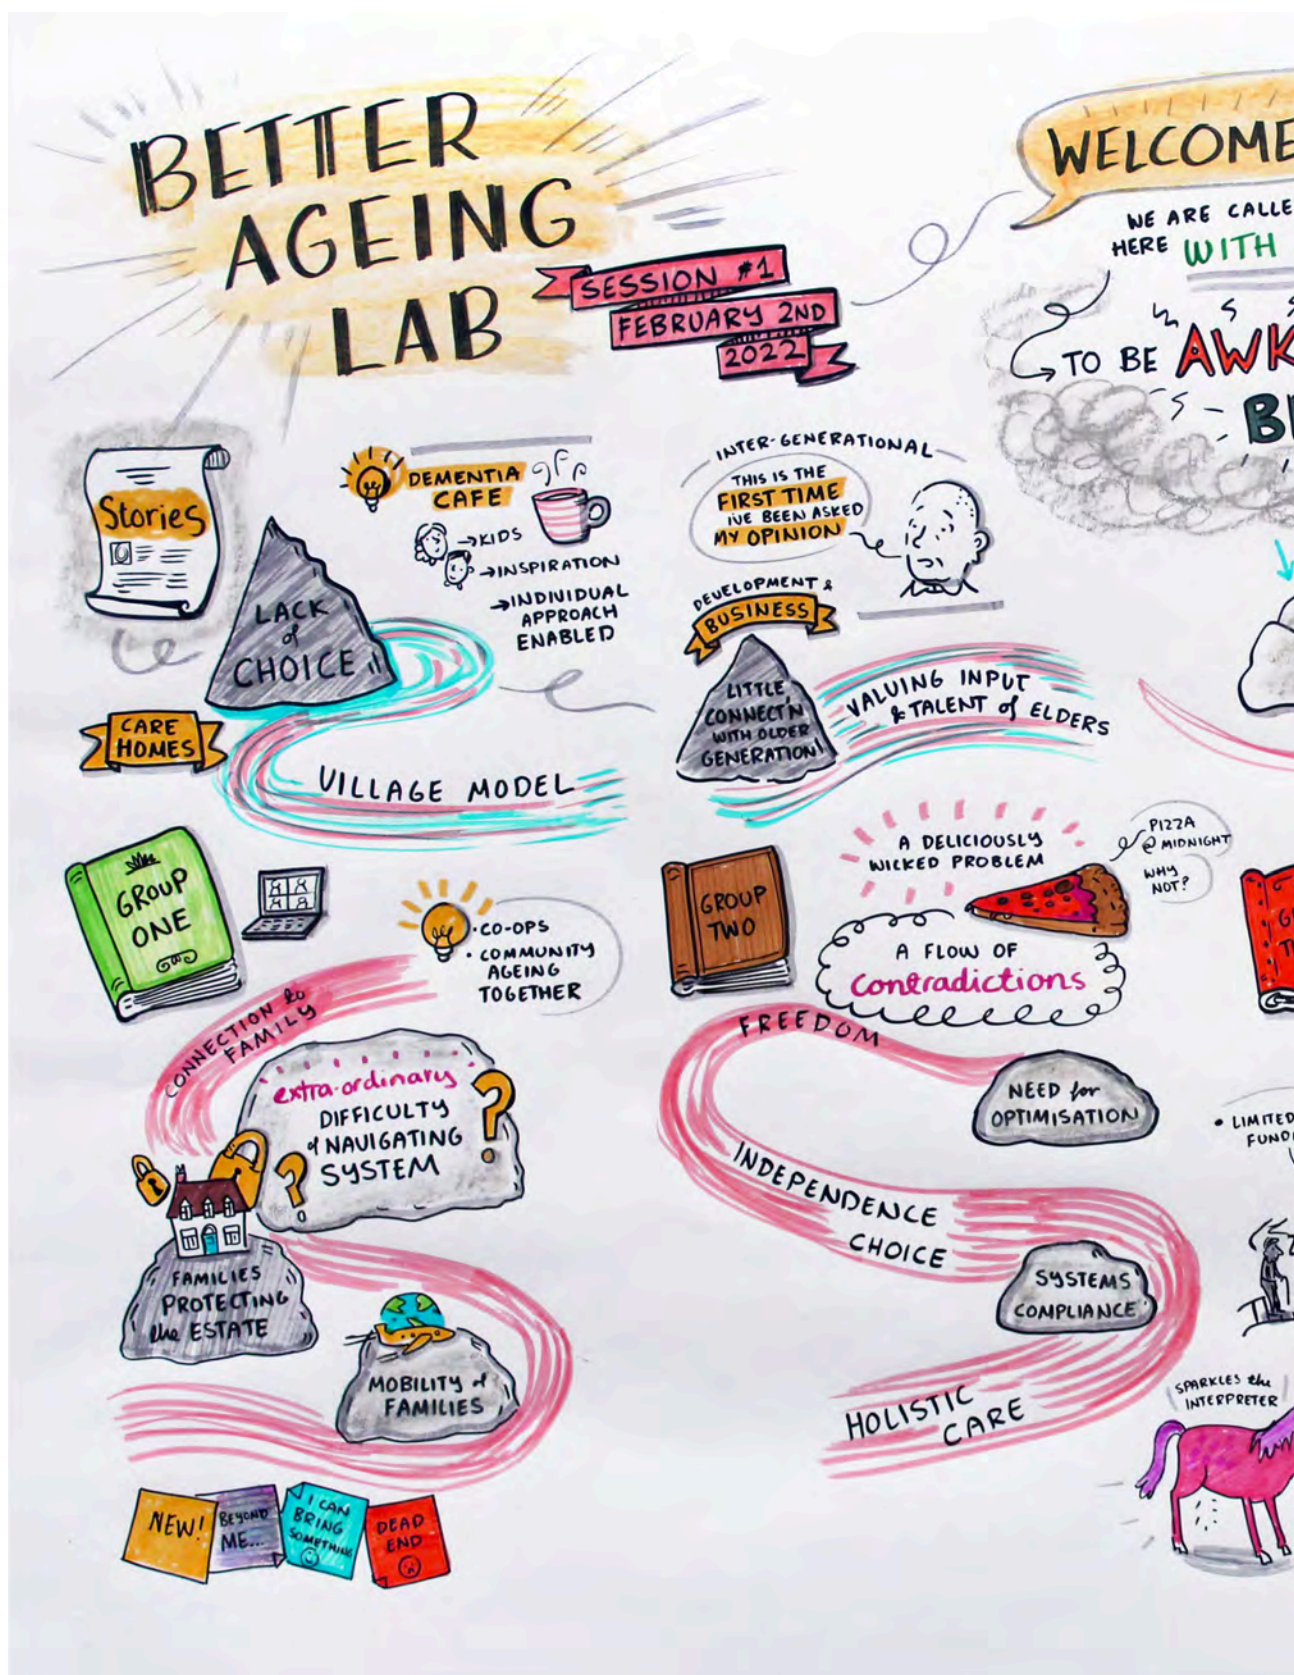 BETTER
AGEING
LAB
SESSION #1
FEBRUARY 2ND
2022
WELCOME
WE ARE CALLE
HERE WITH
TO BE AWK
Stories
LACK
of
CHOICE
DEMENTIA
CAFE
→KIDS
→INSPIRATION
→INDIVIDUAL
APPROACH
ENABLED
CARE
HOMES
VILLAGE MODEL
INTER-GENERATIONAL
THIS IS THE
FIRST TIME
I'VE BEEN ASKED
MY OPINION
DEVELOPMENT &
BUSINESS
LITTLE
CONNECT'N
WITH OLDER
GENERATION
VALUING INPUT
& TALENT of ELDERS
GROUP
ONE
• CO-OPS
• COMMUNITY
AGEING
TOGETHER
CONNECTION to
FAMILY
extra-ordinary
DIFFICULTY
of NAVIGATING
SYSTEM
? ?
FAMILIES
PROTECTING
the ESTATE
MOBILITY of
FAMILIES
NEW!
BEYOND
ME...
I CAN
BRING
SOMETHING
DEAD
END
GROUP
TWO
A DELICIOUSLY
WICKED PROBLEM
PIZZA
@ MIDNIGHT
WHY
NOT?
A FLOW OF
contradictions
FREEDOM
NEED for
OPTIMISATION
INDEPENDENCE
CHOICE
SYSTEMS
COMPLIANCE
HOLISTIC
CARE
• LIMITED
FUND
SPARKLES the
INTERPRETER